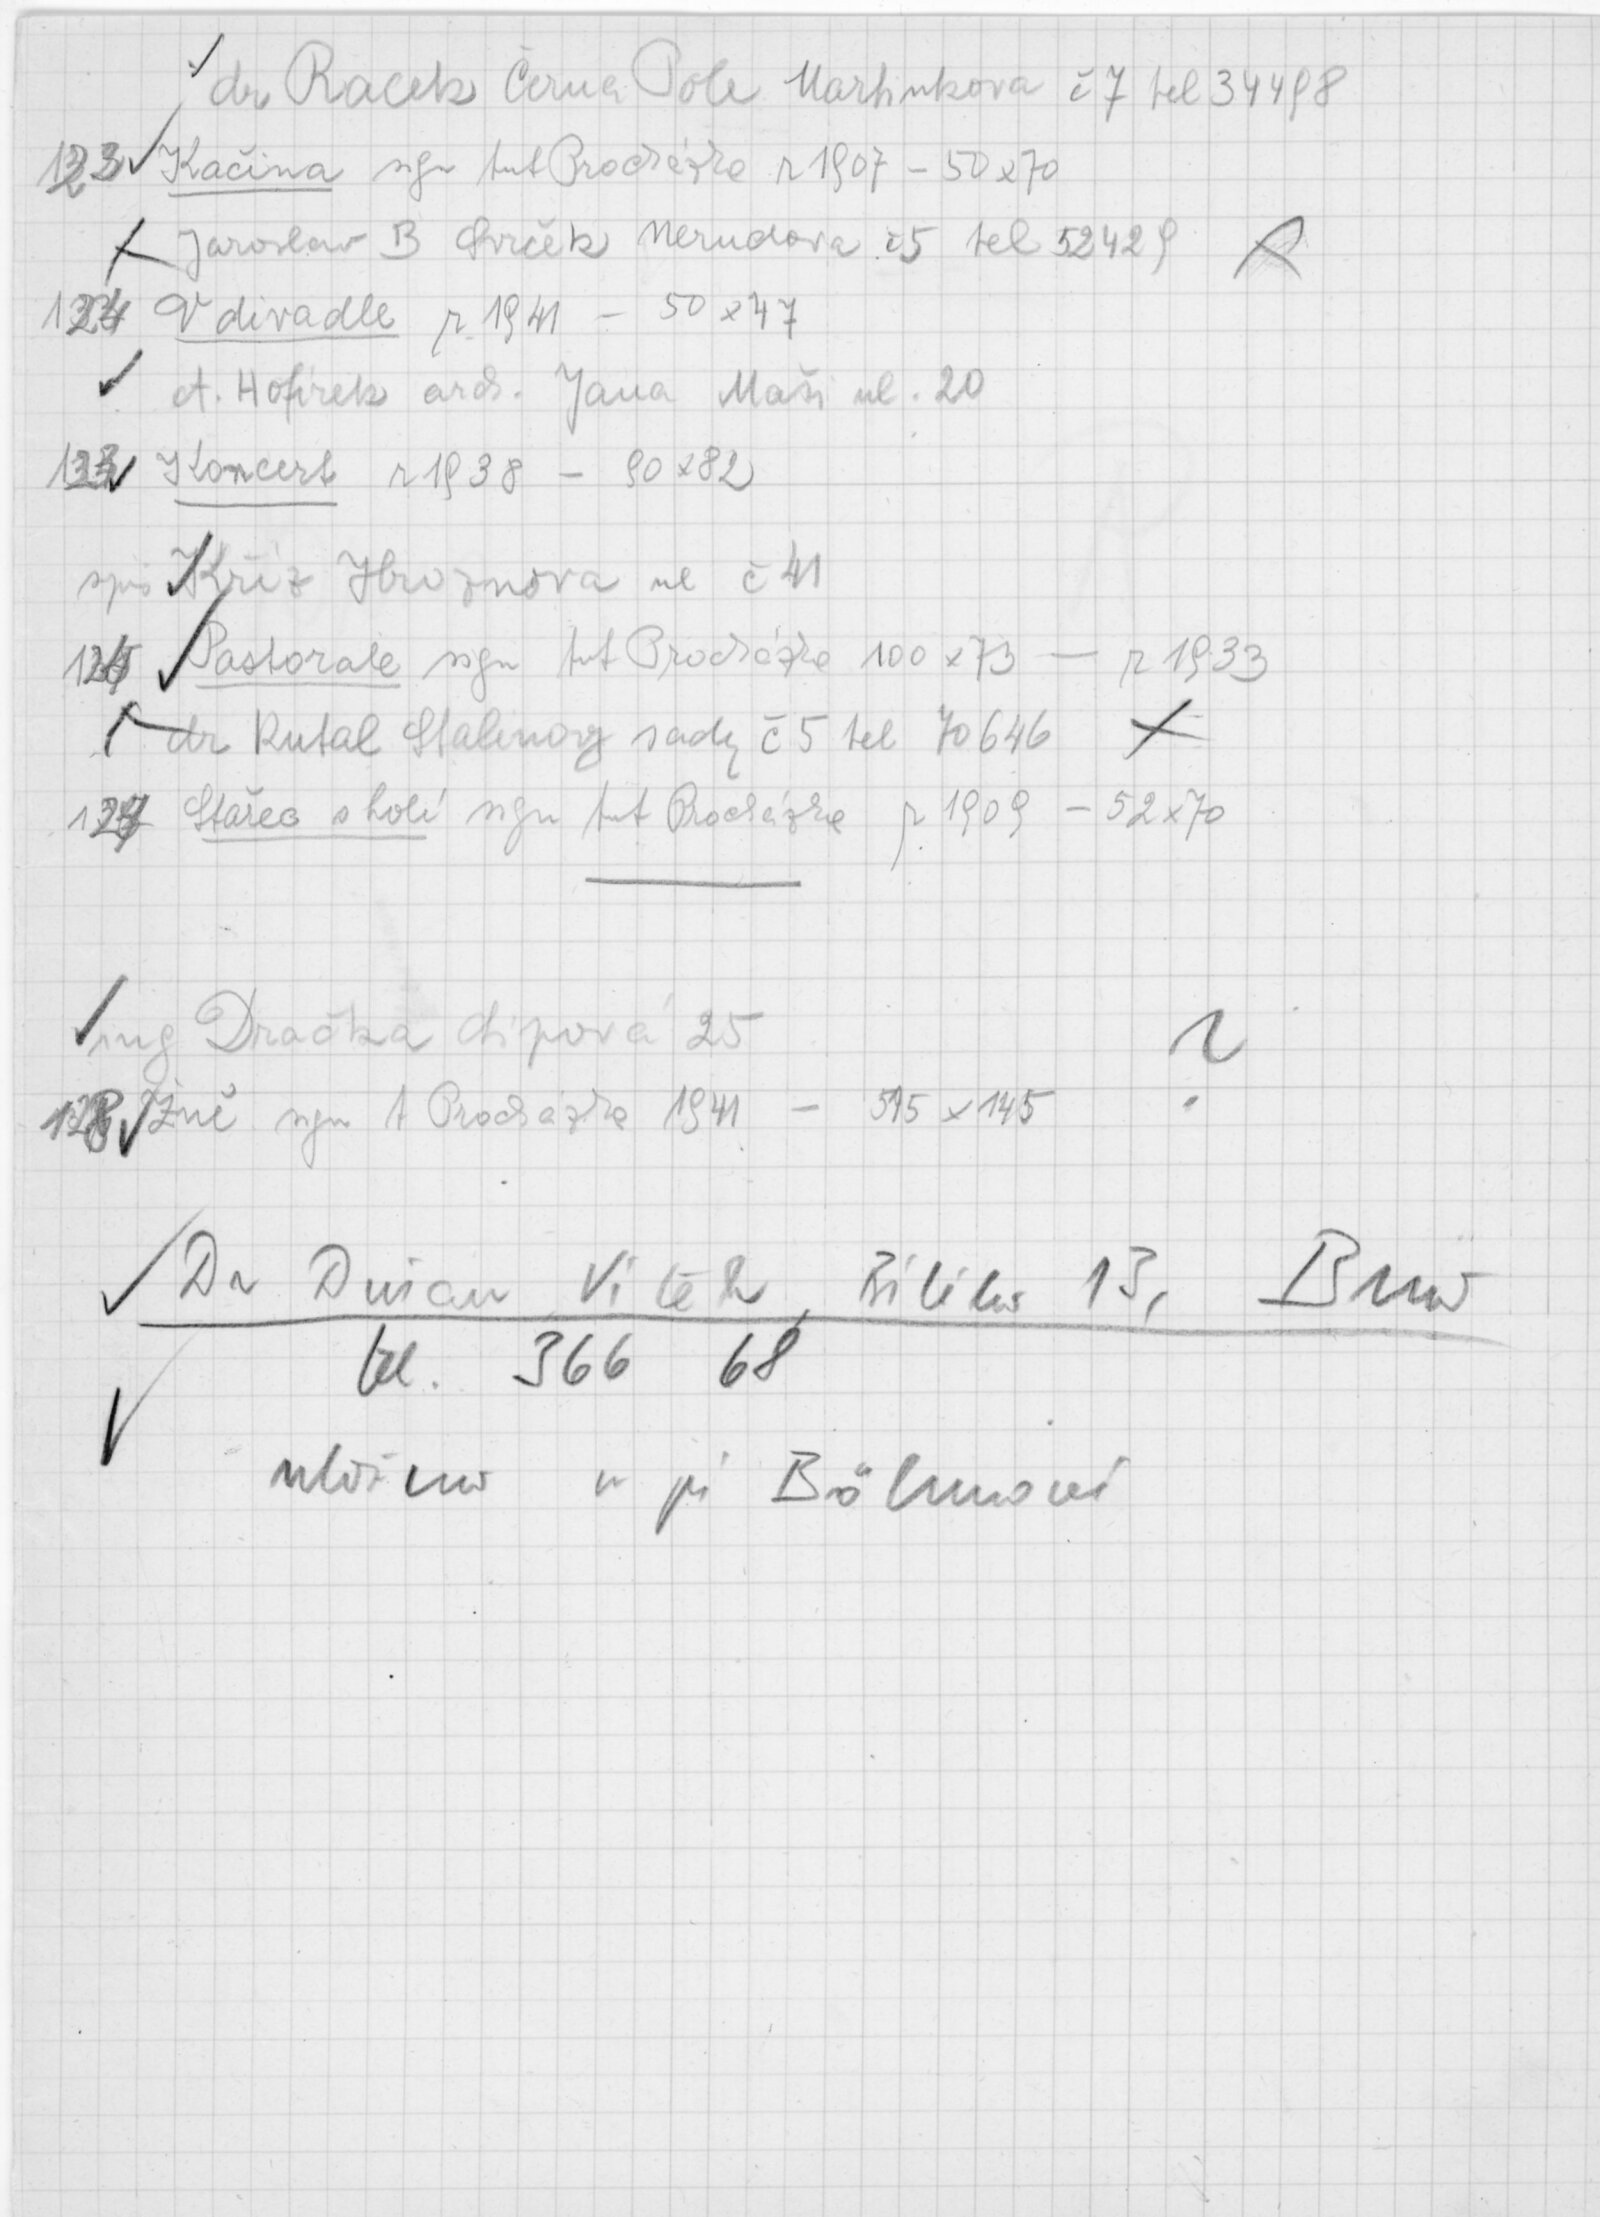 dr Racek Černa Pole Martinkova č 7 tel 34498
123 Kačina sgn Ant Procházka r 1907 – 50x70
Jaroslav B Svrček Nerudova č5 tel 52429
124 V divadle r 1941 – 50x47
A. Hofírek arch. Jana Maši ul. 20
Koncert r 1938 – 90x82
spis Kříž Hroznova ul č 41
Pastorale sgn Ant Procházka 100x73 — r 1933
dr Kutal Stalinovy sady č 5 tel 70646
127 Stařec s holí sgn Ant Procházka r 1909 – 52x70
ing Dračka Lipová 25 ?
128 Žně sgn A Procházka 1941 – 595x145
Dr Dušan Vítěk, Bílého 13, Brno
tel. 366 68
uloženo u pí Böhmové